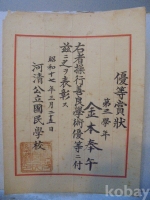 優等賞狀
第三學年
金木奉午
右者操行善良學術優等ニ付
茲ニ之ヲ表彰ス
昭和十七年三月二十五日
河清公立國民學校
kobay